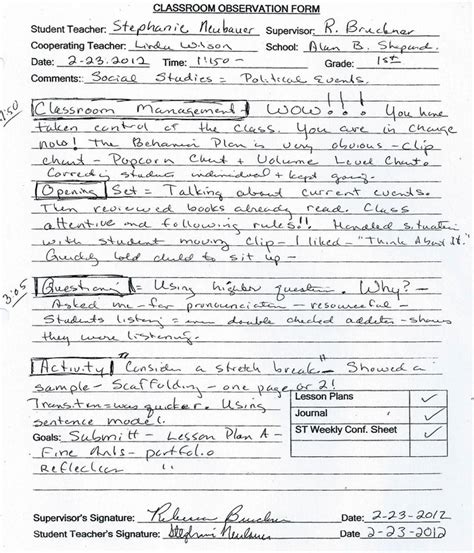 CLASSROOM OBSERVATION FORM
Student Teacher: Stephanie Neubauer Supervisor: R. Bruckner
Cooperating Teacher: Linda Wilson School: Alan B. Shepard
Date: 2-23-2012 Time: 1:50- Grade: 1st
Comments: Social Studies = Political Events.
1:50
Classroom Management - WOW!!! You have
taken control of the class. You are in charge
now! The Behavior Plan is very obvious - clip
chart - Popcorn Chart + Volume Level Chart.
student individual + kept going.
Opening Set = Talking about current events.
Then reviewed books already read. Class
attentive and following rules!! Handled situation
with student moving clip - I liked - "Think About It."
Quickly told child to sit up -
3:05
Question = Using higher question. Why? -
Asked me - for pronunciation - resourceful -
Students listing = double checked - shows
they were listening.
Activity Consider a stretch break - Showed a
sample - Scaffolding - one page or 2!
Transition = was quicker. Using
sentence model.
Lesson Plans ✓
Journal ✓
ST Weekly Conf. Sheet ✓
Goals: Submitt - Lesson Plan A -
Fine Arts - portfolio
Reflection
Supervisor's Signature: Rebecca Bruckner Date: 2-23-2012
Student Teacher's Signature: Stephanie Neubauer Date: 2-23-2012